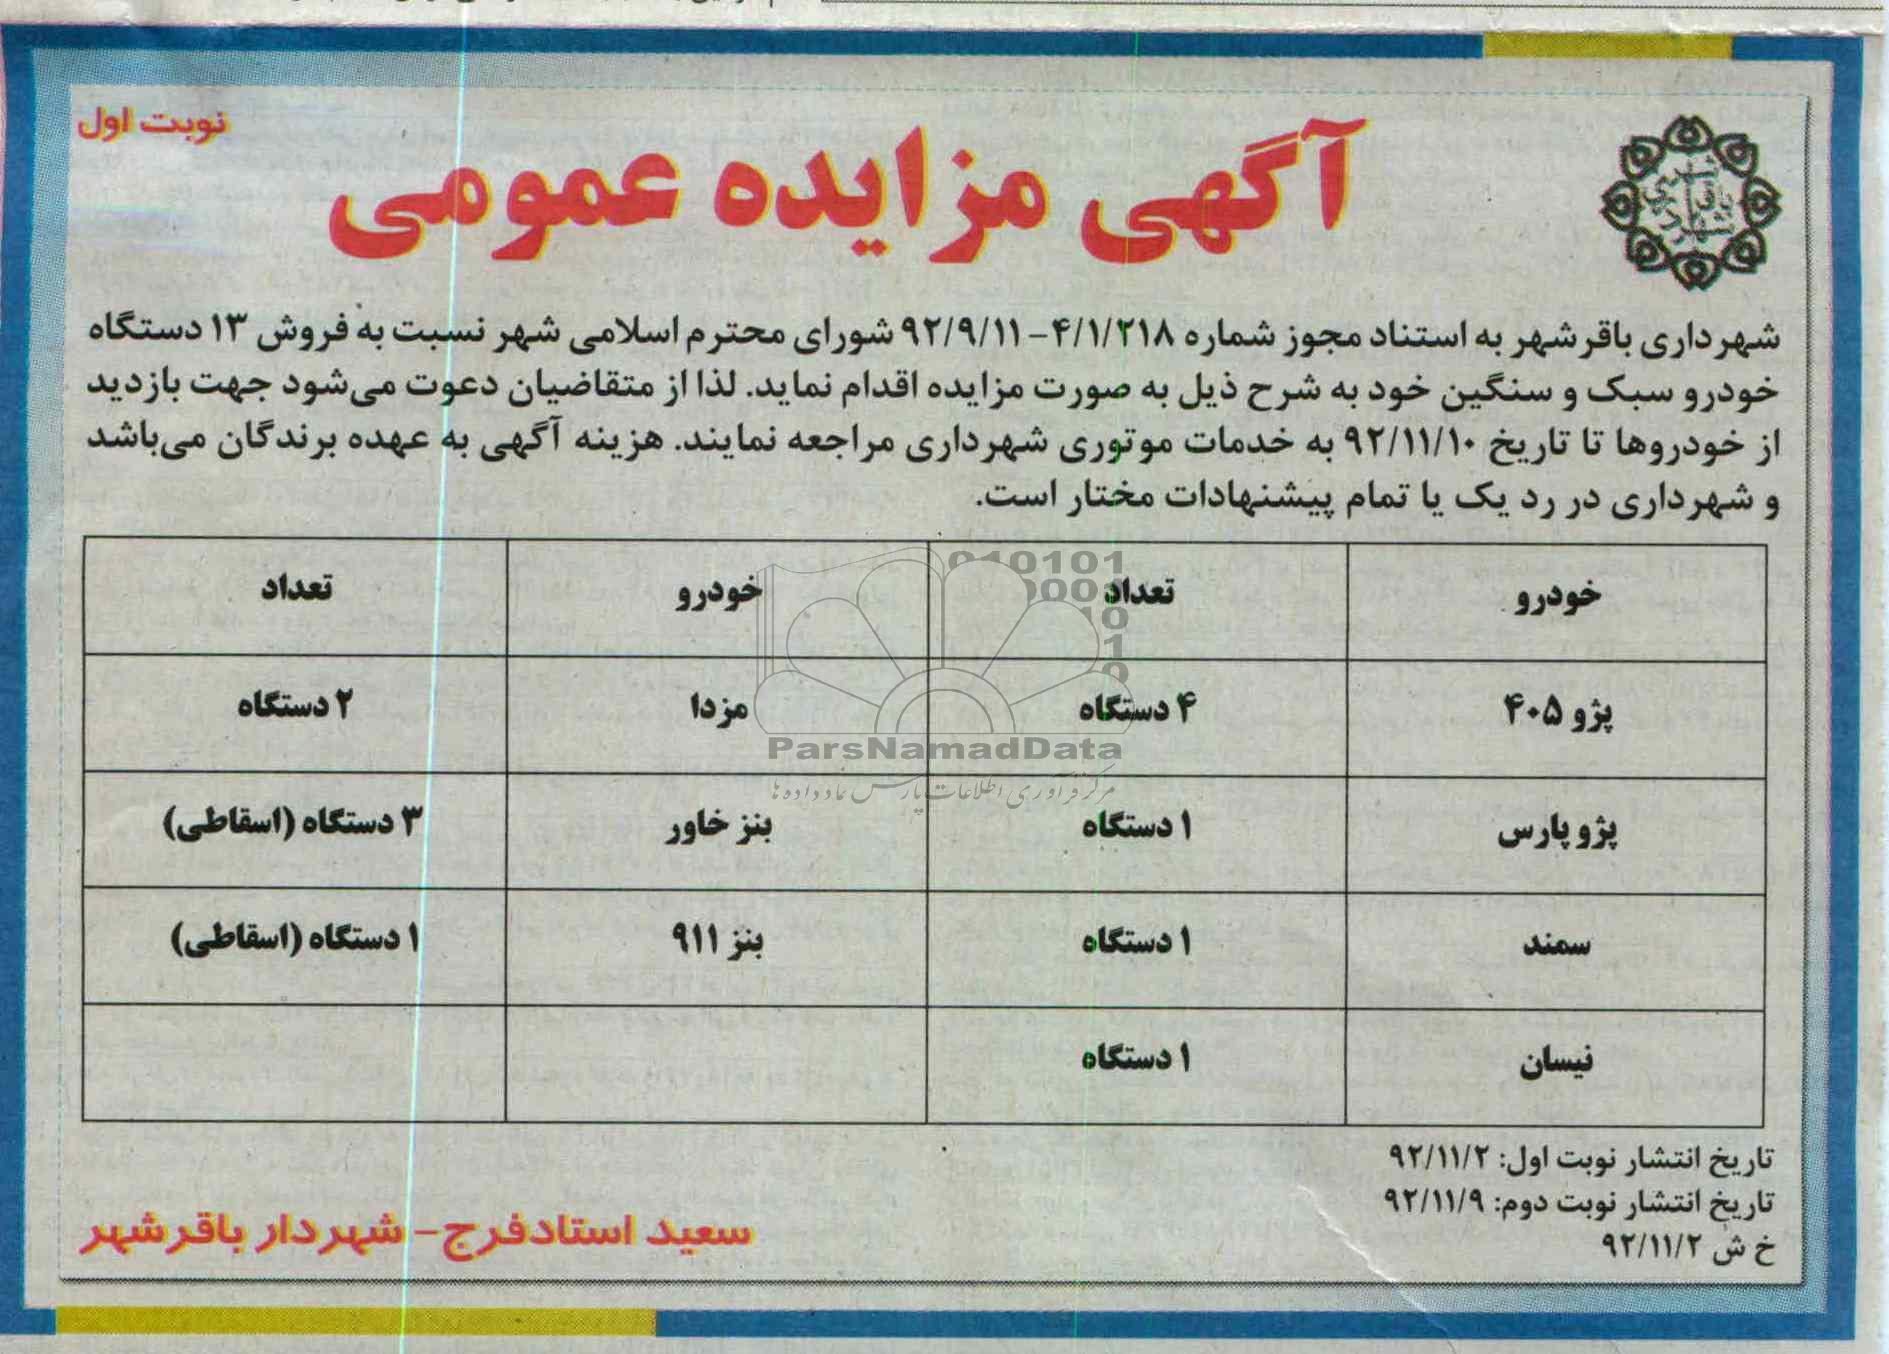 نوبت اول
آگهی مزایده عمومی
شهرداری باقرشهر به استناد مجوز شماره ۴/۱/۲۱۸-۹۲/۹/۱۱ شورای محترم اسلامی شهر نسبت به فروش ۱۳ دستگاه
خودرو سبک و سنگین خود به شرح ذیل به صورت مزایده اقدام نماید. لذا از متقاضیان دعوت می‌شود جهت بازدید
از خودروها تا تاریخ ۹۲/۱۱/۱۰ به خدمات موتوری شهرداری مراجعه نمایند. هزینه آگهی به عهده برندگان می‌باشد
و شهرداری در رد یک یا تمام پیشنهادات مختار است.
خودرو تعداد خودرو تعداد
پژو ۴۰۵ ۴ دستگاه مزدا ۲ دستگاه
پژو پارس ۱ دستگاه بنز خاور ۳ دستگاه (اسقاطی)
سمند ۱ دستگاه بنز ۹۱۱ ۱ دستگاه (اسقاطی)
نیسان ۱ دستگاه
ParsNamadData
مرکز فرآوری اطلاعات پارس نماد داده ها
تاریخ انتشار نوبت اول: ۹۲/۱۱/۲
تاریخ انتشار نوبت دوم: ۹۲/۱۱/۹
خ ش ۹۲/۱۱/۲
سعید استادفرج- شهردار باقرشهر